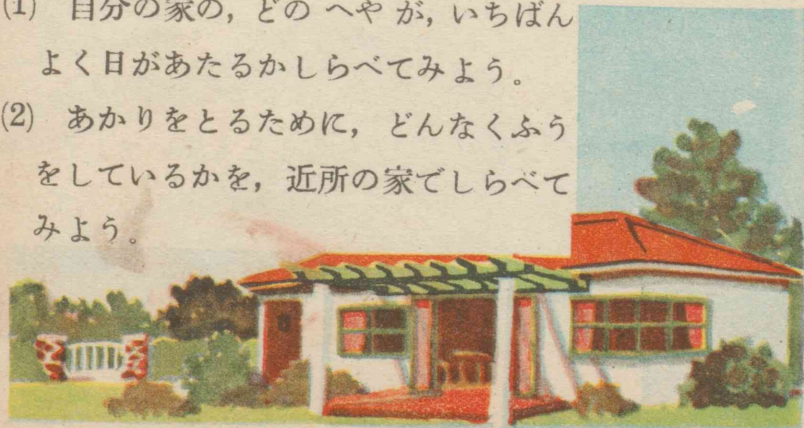 (1) 自分の家の，どの へや が，いちばん
よく日があたるかしらべてみよう。
(2) あかりをとるために，どんなくふう
をしているかを，近所の家でしらべて
みよう。